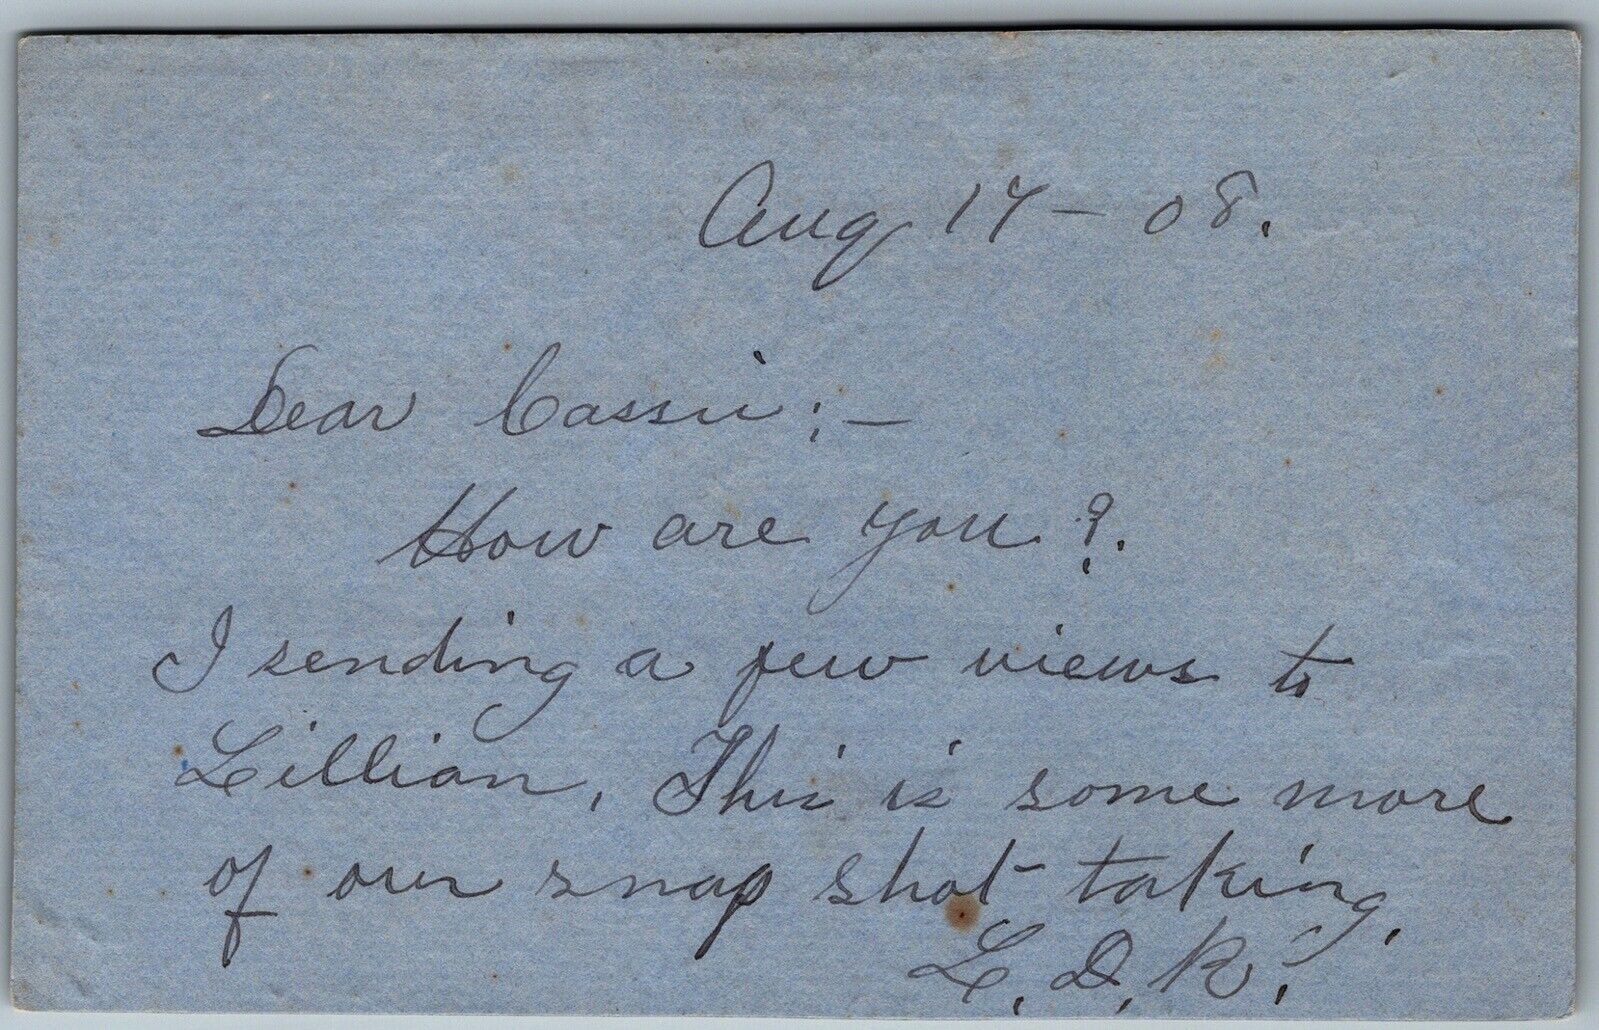 Aug 17 - 08.
Dear Cassie:-
How are you?.
I sending a few views to
Lillian. This is some more
of our snap shot taking.
L. D. R.